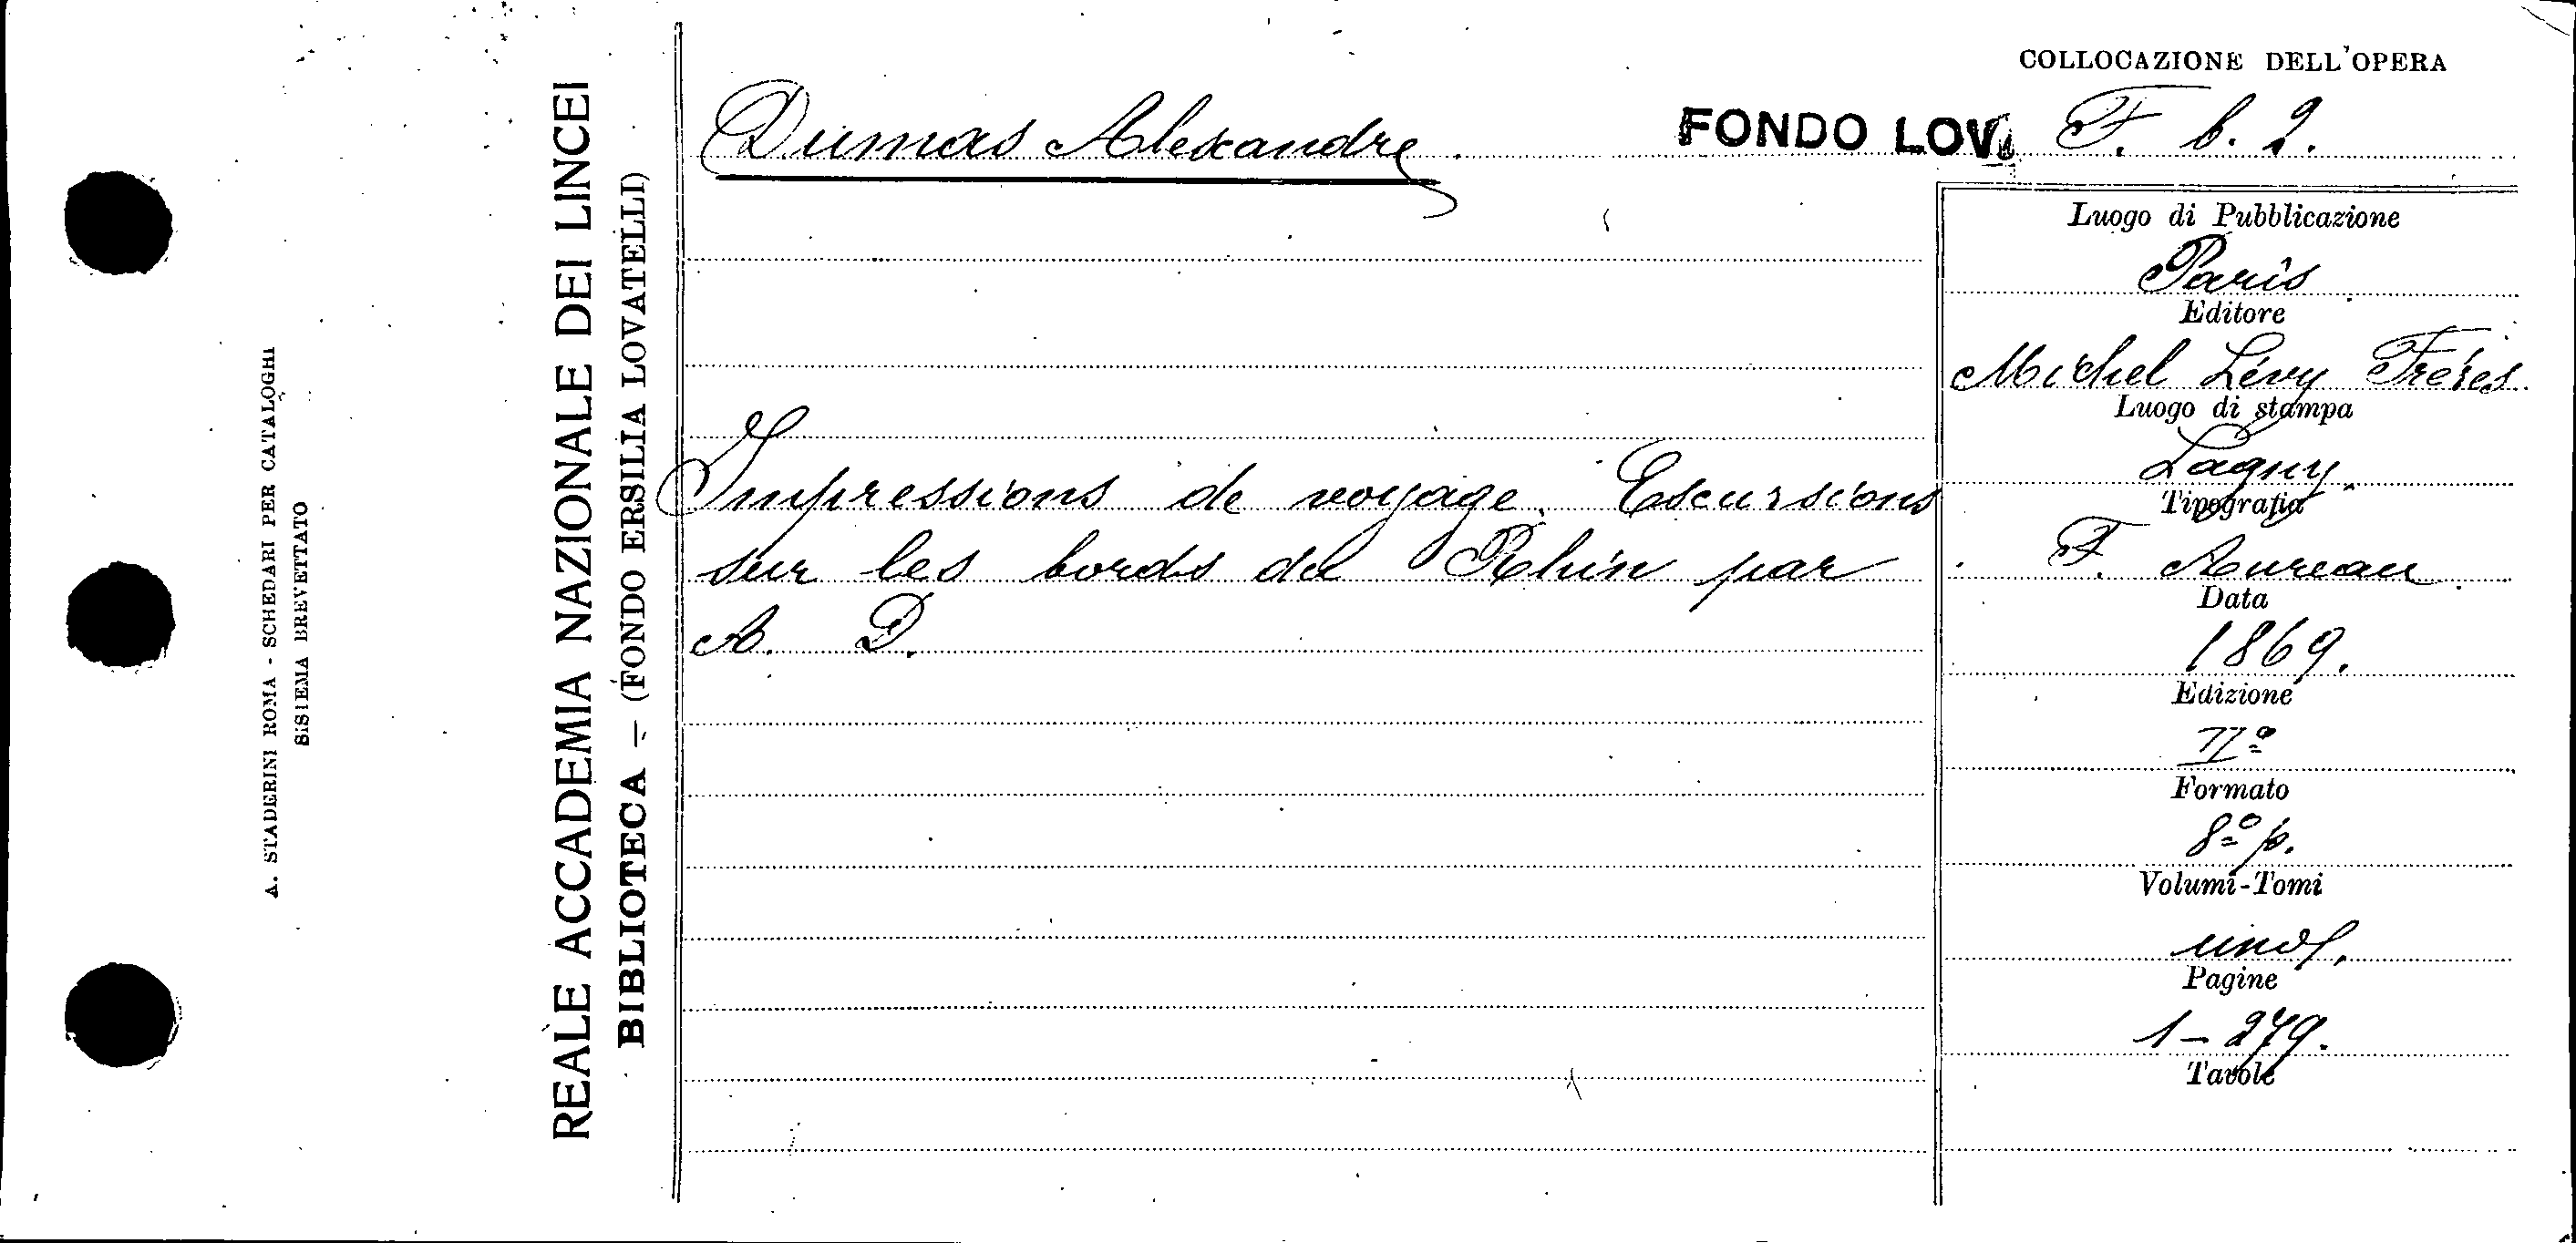 A. STADERINI ROMA - SCHEDARI PER CATALOGHI
SISTEMA BREVETTATO
REALE ACCADEMIA NAZIONALE DEI LINCEI
BIBLIOTECA - (FONDO ERSILIA LOVATELLI)
COLLOCAZIONE DELL'OPERA
Dumas Alexandre. FONDO LOV. F. b. 2.
Impressions de voyage. Escursions
sur les bords del Rhin par
A. D.
Luogo di Pubblicazione
Paris
Editore
Michel Lévy Fréres.
Luogo di stampa
Lagny.
Tipografia
F. Aureau.
Data
1869.
Edizione
IIº
Formato
8º p.
Volumi-Tomi
Pagine
1-279.
Tavole